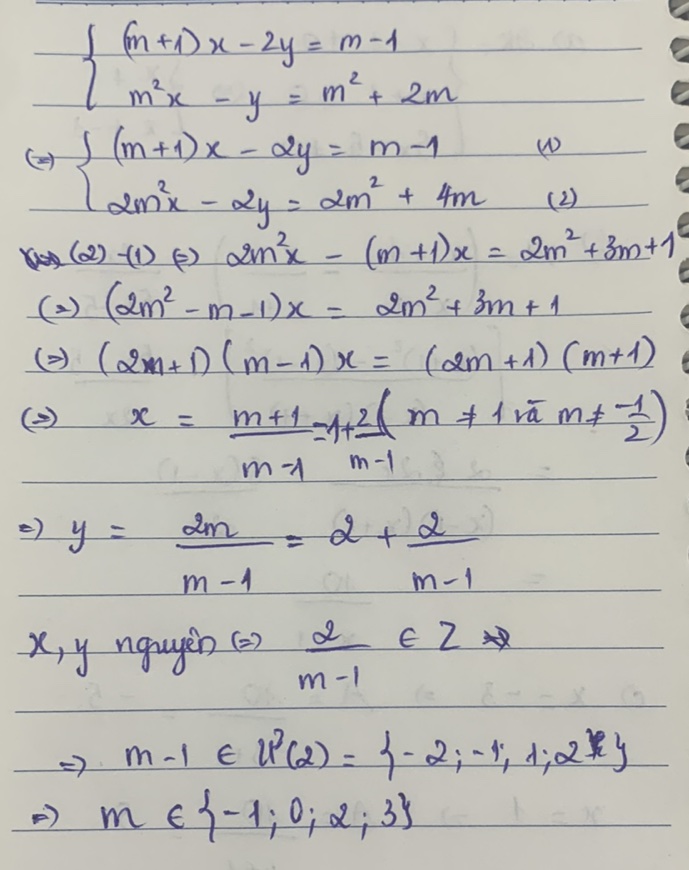 (m+1)x - 2y = m-1
m²x - y = m² + 2m
(=) (m+1)x - 2y = m-1 (1)
2m²x - 2y = 2m² + 4m (2)
(2) -(1) (=) 2m²x - (m+1)x = 2m²+3m+1
(=) (2m² - m - 1)x = 2m² + 3m + 1
(=) (2m+1)(m-1)x = (2m+1)(m+1)
(=) x = (m+1)/(m-1) = 1 + 2/(m-1) (m ≠ 1 và m ≠ -1/2)
=) y = 2m/(m-1) = 2 + 2/(m-1)
x, y nguyên (=) 2/(m-1) ∈ Z
=) m-1 ∈ Ư(2) = {-2; -1; 1; 2}
=) m ∈ {-1; 0; 2; 3}